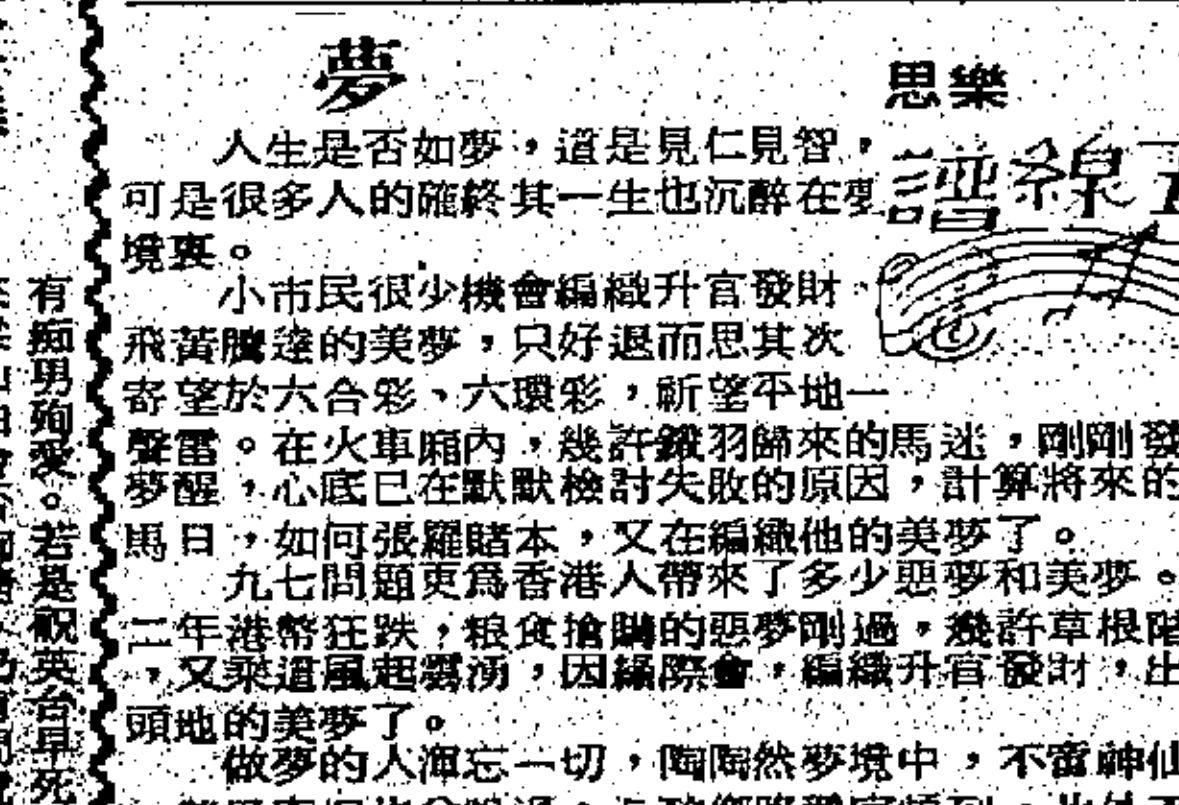 夢
思樂
譜線五
人生是否如夢，道是見仁見智，
可是很多人的確終其一生也沉醉在夢
境裏。
小市民很少機會編織升官發財，
飛黃騰達的美夢，只好退而思其次
寄望於六合彩、六環彩，祈望平地一
聲雷。在火車廂內，幾許鎩羽歸來的馬迷，剛剛發
夢醒，心底已在默默檢討失敗的原因，計算將來的
馬日，如何張羅賭本，又在編織他的美夢了。
九七問題更爲香港人帶來了多少惡夢和美夢。
二年港幣狂跌，粮食搶購的惡夢剛過，幾許草根階
，又乘這風起雲湧，因緣際會，編織升官發財，出
頭地的美夢了。
做夢的人渾忘一切，陶陶然夢境中，不啻神仙
有痴男殉愛。若是祝英台早死